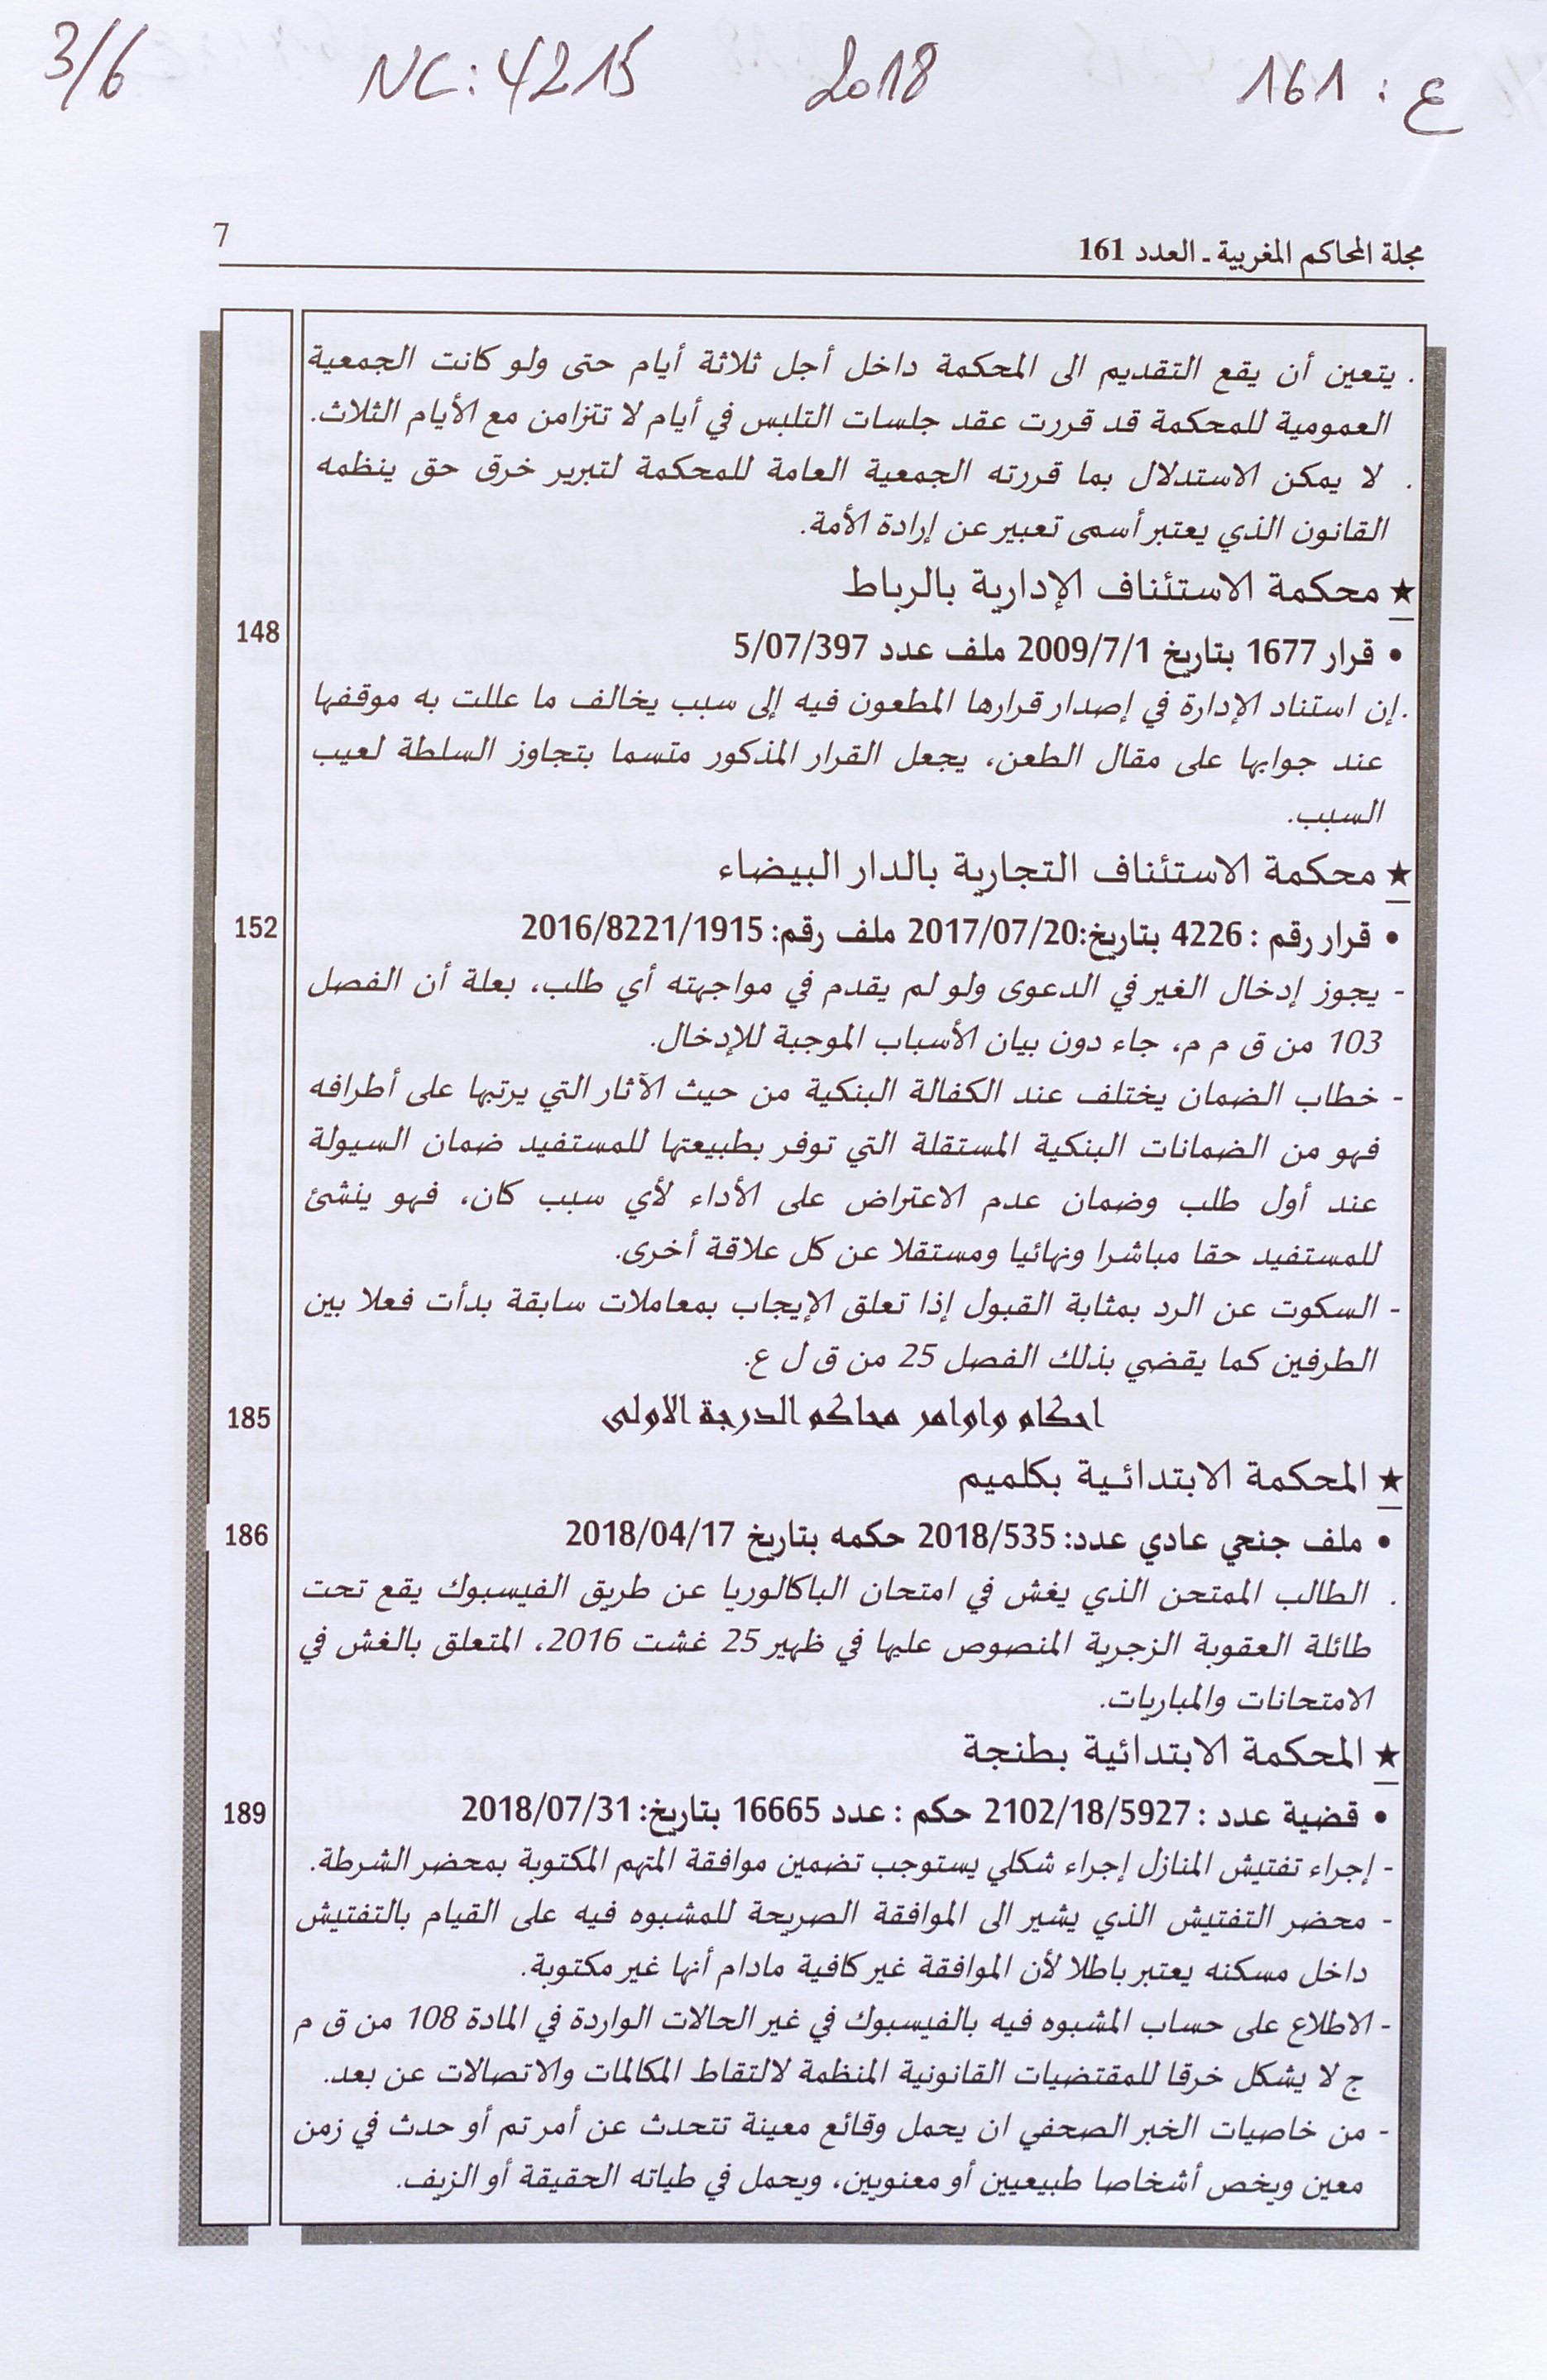 3/6 NC: 4215 2018 ع : 161
مجلة المحاكم المغربية ـ العدد 161 7
. يتعين أن يقع التقديم الى المحكمة داخل أجل ثلاثة أيام حتى ولو كانت الجمعية
العمومية للمحكمة قد قررت عقد جلسات التلبس في أيام لا تتزامن مع الأيام الثلاث.
. لا يمكن الاستدلال بما قررته الجمعية العامة للمحكمة لتبرير خرق حق ينظمه
القانون الذي يعتبر أسمى تعبير عن إرادة الأمة.
★ محكمة الاستئناف الإدارية بالرباط
• قرار 1677 بتاريخ 2009/7/1 ملف عدد 5/07/397 148
. إن استناد الإدارة في إصدار قرارها المطعون فيه إلى سبب يخالف ما عللت به موقفها
عند جوابها على مقال الطعن، يجعل القرار المذكور متسما بتجاوز السلطة لعيب
السبب.
★ محكمة الاستئناف التجارية بالدار البيضاء
• قرار رقم : 4226 بتاريخ:2017/07/20 ملف رقم: 2016/8221/1915 152
- يجوز إدخال الغير في الدعوى ولو لم يقدم في مواجهته أي طلب، بعلة أن الفصل
103 من ق م م، جاء دون بيان الأسباب الموجبة للإدخال.
- خطاب الضمان يختلف عند الكفالة البنكية من حيث الآثار التي يرتبها على أطرافه
فهو من الضمانات البنكية المستقلة التي توفر بطبيعتها للمستفيد ضمان السيولة
عند أول طلب وضمان عدم الاعتراض على الأداء لأي سبب كان، فهو ينشئ
للمستفيد حقا مباشرا ونهائيا ومستقلا عن كل علاقة أخرى.
- السكوت عن الرد بمثابة القبول إذا تعلق الإيجاب بمعاملات سابقة بدأت فعلا بين
الطرفين كما يقضي بذلك الفصل 25 من ق ل ع.
احكام واوامر محاكم الدرجة الاولى 185
★ المحكمة الابتدائية بكلميم
• ملف جنحي عادي عدد: 2018/535 حكمه بتاريخ 2018/04/17 186
. الطالب الممتحن الذي يغش في امتحان الباكالوريا عن طريق الفيسبوك يقع تحت
طائلة العقوبة الزجرية المنصوص عليها في ظهير 25 غشت 2016، المتعلق بالغش في
الامتحانات والمباريات.
★ المحكمة الابتدائية بطنجة
• قضية عدد : 2102/18/5927 حكم : عدد 16665 بتاريخ: 2018/07/31 189
- إجراء تفتيش المنازل إجراء شكلي يستوجب تضمين موافقة المتهم المكتوبة بمحضر الشرطة.
- محضر التفتيش الذي يشير الى الموافقة الصريحة للمشبوه فيه على القيام بالتفتيش
داخل مسكنه يعتبر باطلا لأن الموافقة غير كافية مادام أنها غير مكتوبة.
- الاطلاع على حساب المشبوه فيه بالفيسبوك في غير الحالات الواردة في المادة 108 من ق م
ج لا يشكل خرقا للمقتضيات القانونية المنظمة لالتقاط المكالمات والاتصالات عن بعد.
- من خاصيات الخبر الصحفي ان يحمل وقائع معينة تتحدث عن أمر تم أو حدث في زمن
معين ويخص أشخاصا طبيعيين أو معنويين، ويحمل في طياته الحقيقة أو الزيف.